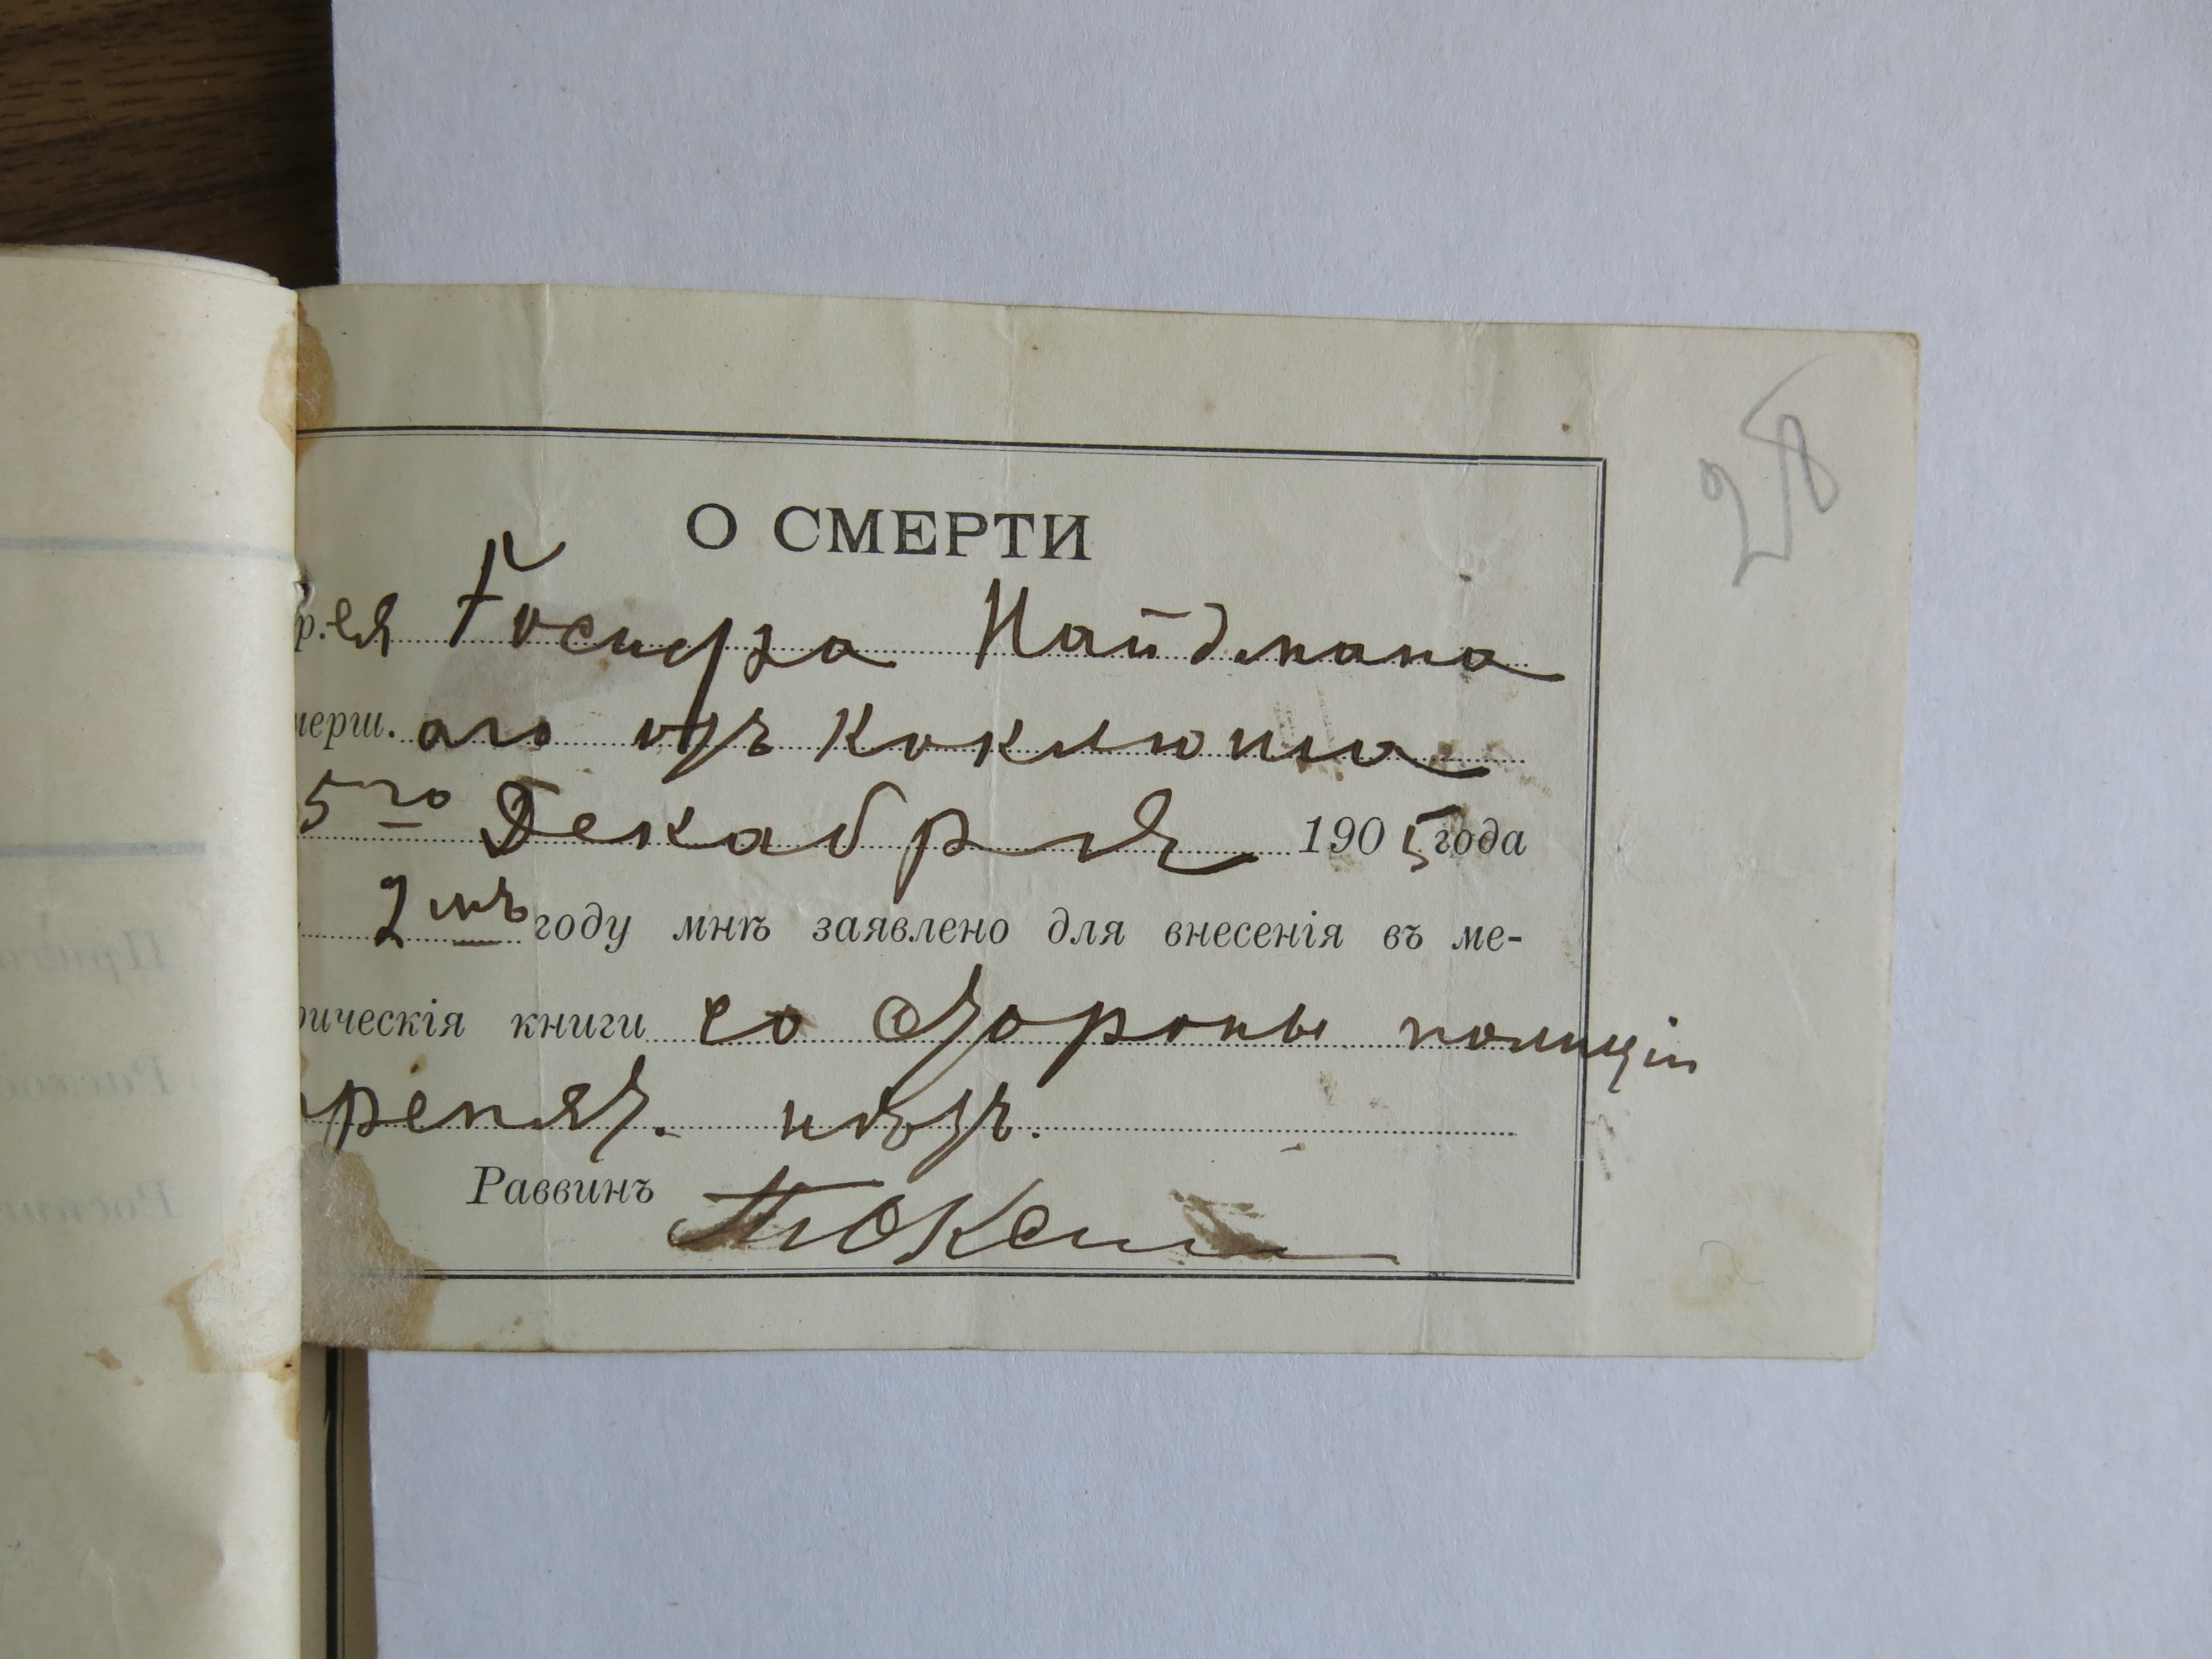 28
О СМЕРТИ
р.ея Іосифа Найдмана
мерш. аго отъ коклюша
5го Декабря 1905 года
2мъ году мнѣ заявлено для внесенія въ ме-
рическія книги со стороны полиціи
препят. нѣтъ.
Раввинъ